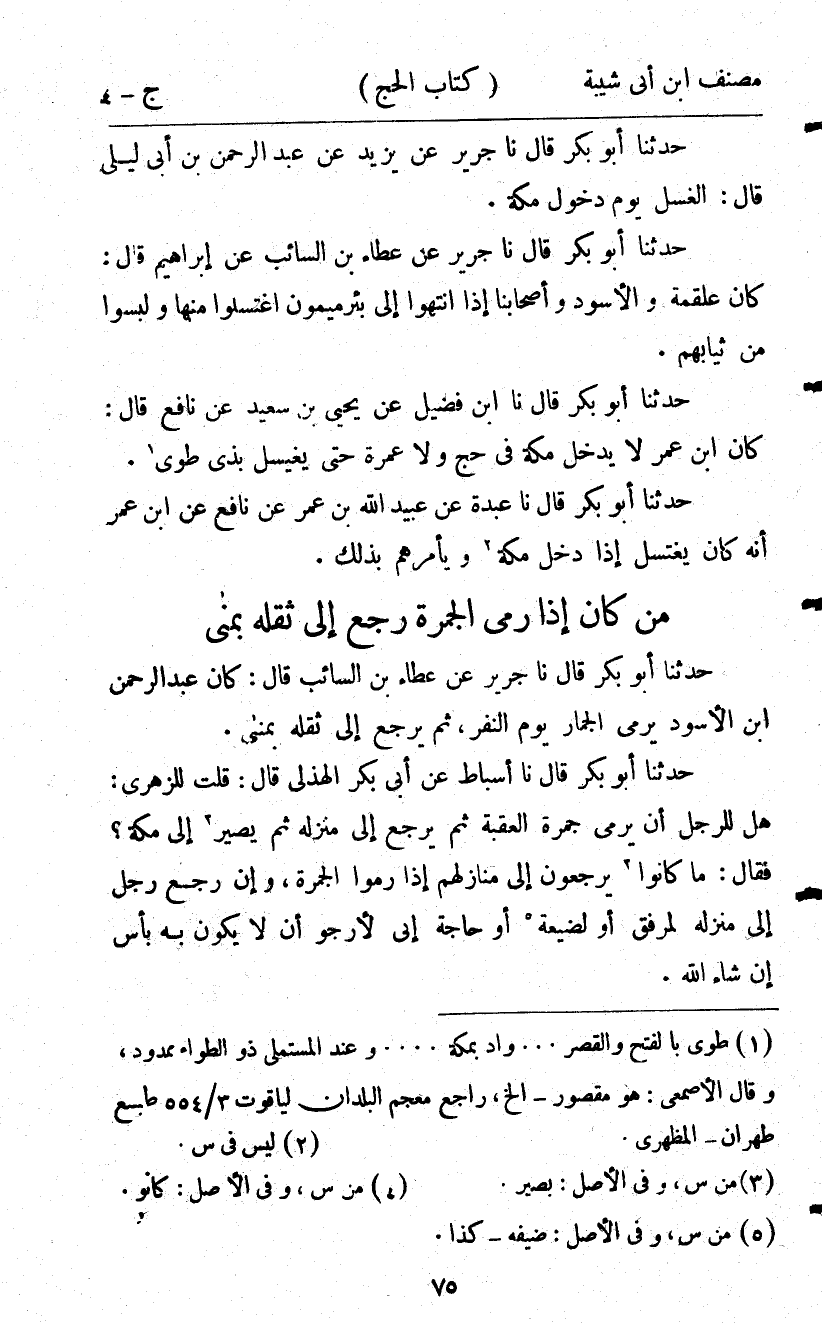 مصنف ابن أبى شيبة ( كتاب الحج ) ج – ٤
حدثنا أبو بكر قال نا جرير عن يزيد عن عبد الرحمن بن أبى ليلى
قال : الغسل يوم دخول مكة .
حدثنا أبو بكر قال نا جرير عن عطاء بن السائب عن إبراهيم قال :
كان علقمة و الأسود و أصحابنا إذا انتهوا إلى بئرميمون اغتسلوا منها و لبسوا
من ثيابهم .
حدثنا أبو بكر قال نا ابن فضيل عن يحيى بن سعيد عن نافع قال :
كان ابن عمر لا يدخل مكة فى حج و لا عمرة حتى يغيسل بذى طوى١ .
حدثنا أبو بكر قال نا عبدة عن عبيد الله بن عمر عن نافع عن ابن عمر
أنه كان يغتسل إذا دخل مكة٢ و يأمرهم بذلك .
من كان إذا رمى الجمرة رجع إلى ثقله بمنى
حدثنا أبو بكر قال نا جرير عن عطاء بن السائب قال : كان عبدالرحمن
ابن الأسود يرمى الجمار يوم النفر ، ثم يرجع إلى ثقله بمنى .
حدثنا أبو بكر قال نا أسباط عن أبى بكر الهذلى قال : قلت للزهرى :
هل للرجل أن يرمى جمرة العقبة ثم يرجع إلى منزله ثم يصير٣ إلى مكة ؟
فقال : ما كانوا٤ يرجعون إلى منازلهم إذا رموا الجمرة ، و إن رجع رجل
إلى منزله لمرفق أو لضيعة٥ أو حاجة إنى لأرجو أن لا يكون به بأس
إن شاء الله .
(١) طوى بالفتح والقصر ... واد بمكة .... و عند المستملى ذو الطواء ممدود ،
و قال الأصمعى : هو مقصور – الخ ، راجع معجم البلدان لياقوت ٣/٥٥٤ طبع
طهران – المظهرى . (٢) ليس فى س .
(٣) من س ، و فى الأصل : بصير . (٤) من س ، و فى الأصل : كانو .
(٥) من س ، و فى الأصل : ضيفه – كذا .
٧٥